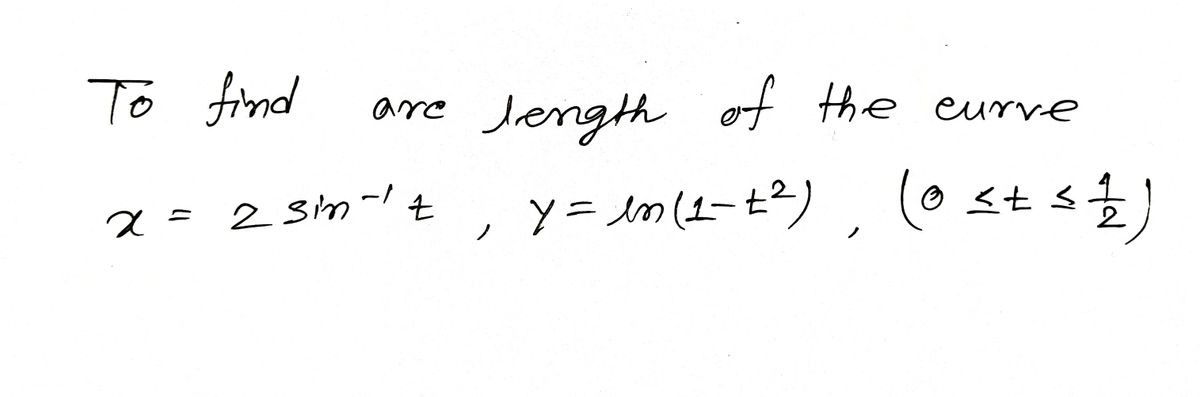 To find arc length of the curve
x = 2 sin⁻¹ t , y = ln(1-t²) , (0 ≤ t ≤ 1/2)